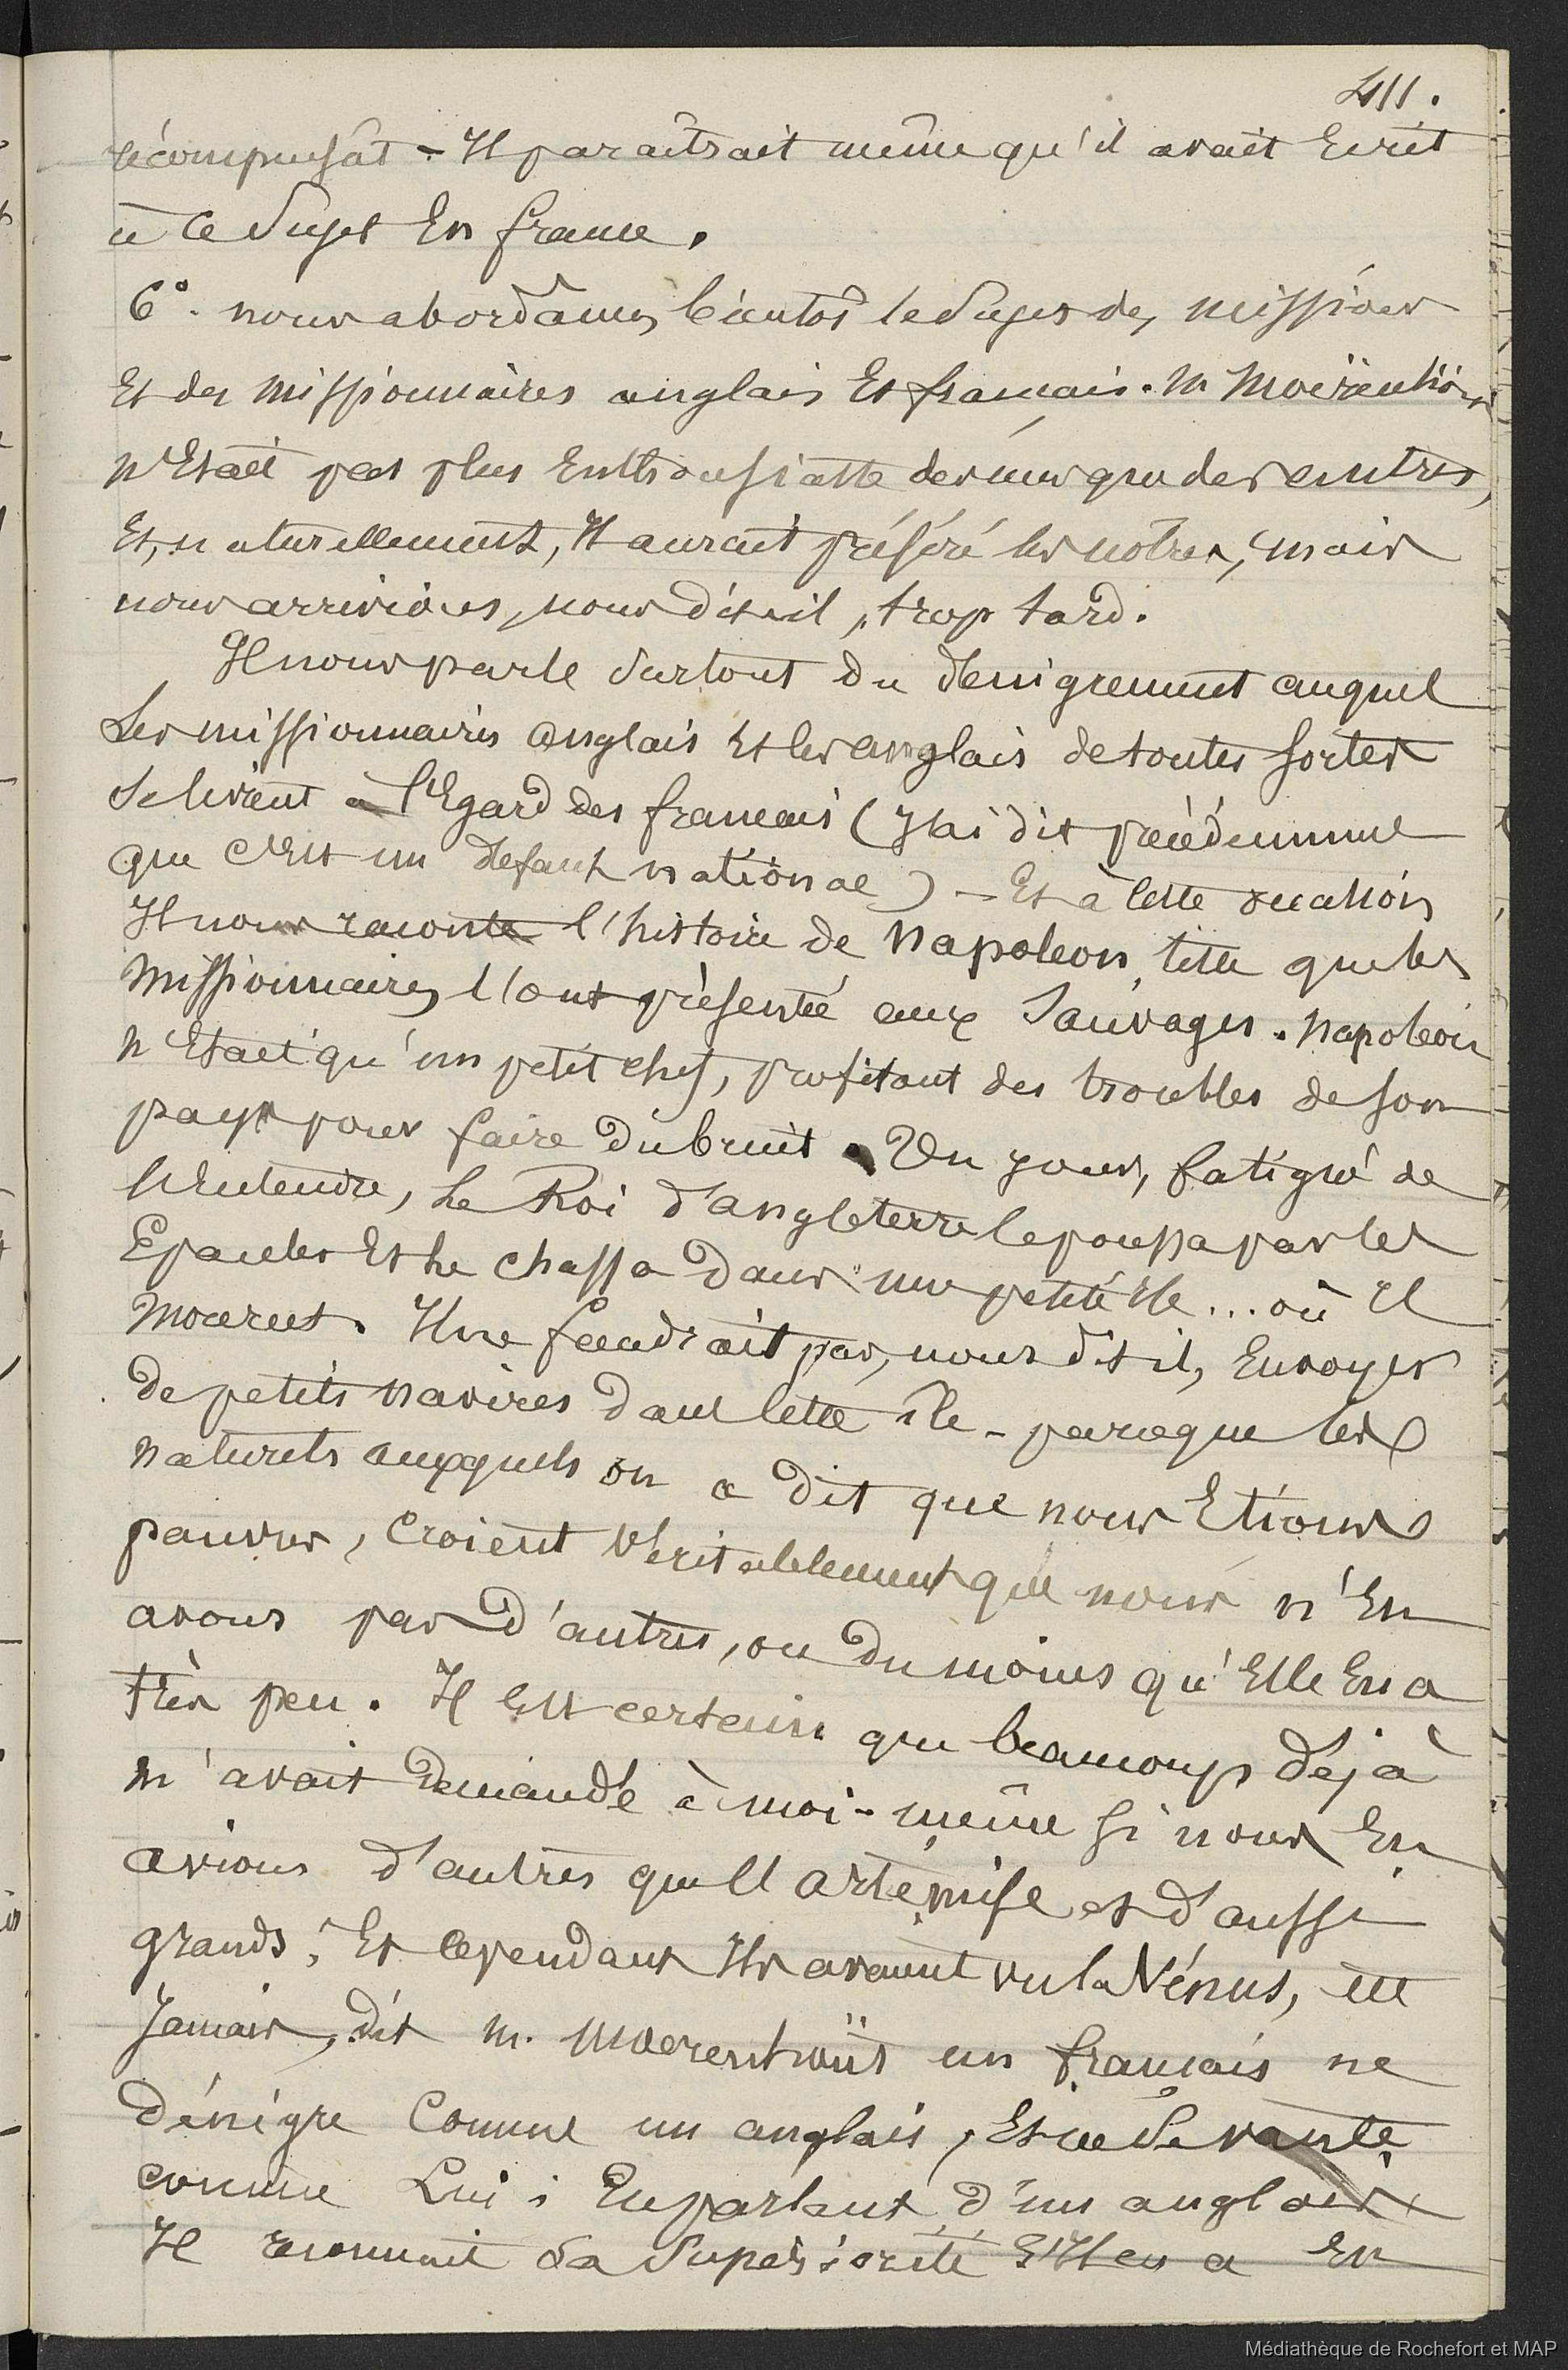 411.
récompensât - Il paraîtrait même qu'il avait Ecrit
à ce Sujet En france.
6°. nous abordâmes bientôt le Sujet des missions
Et des missionnaires anglais Et français. M Moërenhout
n'Etait pas plus Enthousiaste des uns que des autres,
Et, naturellement, Il aurait préféré les notres, mais
nous arrivions, nous dit-il, trop tard.
Il nous parle Surtout du dénigrement auquel
Les missionnaires anglais Et les anglais de toutes sortes
Se livrent à l'Egard des français (J'ai dit précédemment
que c'Est un défaut national) - Et à cette occasion
Il nous raconte l'histoire de Napoléon, telle que les
missionnaires l'ont présentée aux Sauvages. Napoléon
n'Etait qu'un petit chef, profitant des troubles de son
pays pour faire du bruit. Un jour, fatigué de
l'Entendre, Le Roi d'angleterre le poussa par les
Epaules Et le chassa dans une petite Ile... où Il
mourut. Il ne faudrait pas, nous dit il, Envoyer
de petits navires dans cette île - parceque les
naturels auxquels on a dit que nous Etions
pauvres, croient Véritablement que nous n'En
avons pas d'autres, ou du moins qu'Elle En a
très peu. Il Est certain que beaucoup déjà
m'avait demandé à moi-même si nous En
avions d'autres que l'artémise et d'aussi
grands; Et cependant Ils avaient vu la Vénus, ett
Jamais, dit M. Moerenhoüt un français ne
dénigre Comme un anglais, Et ne Se vante
comme Lui; En parlant d'un anglais
Il reconnait Sa Supériorité S'Il en a En